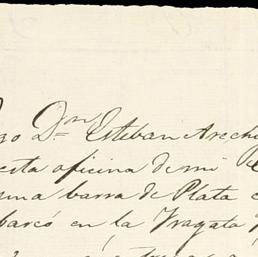 go Dn Don Esteban Arech
esta oficina de mi
una barra de Plata
barcó en la Fragata